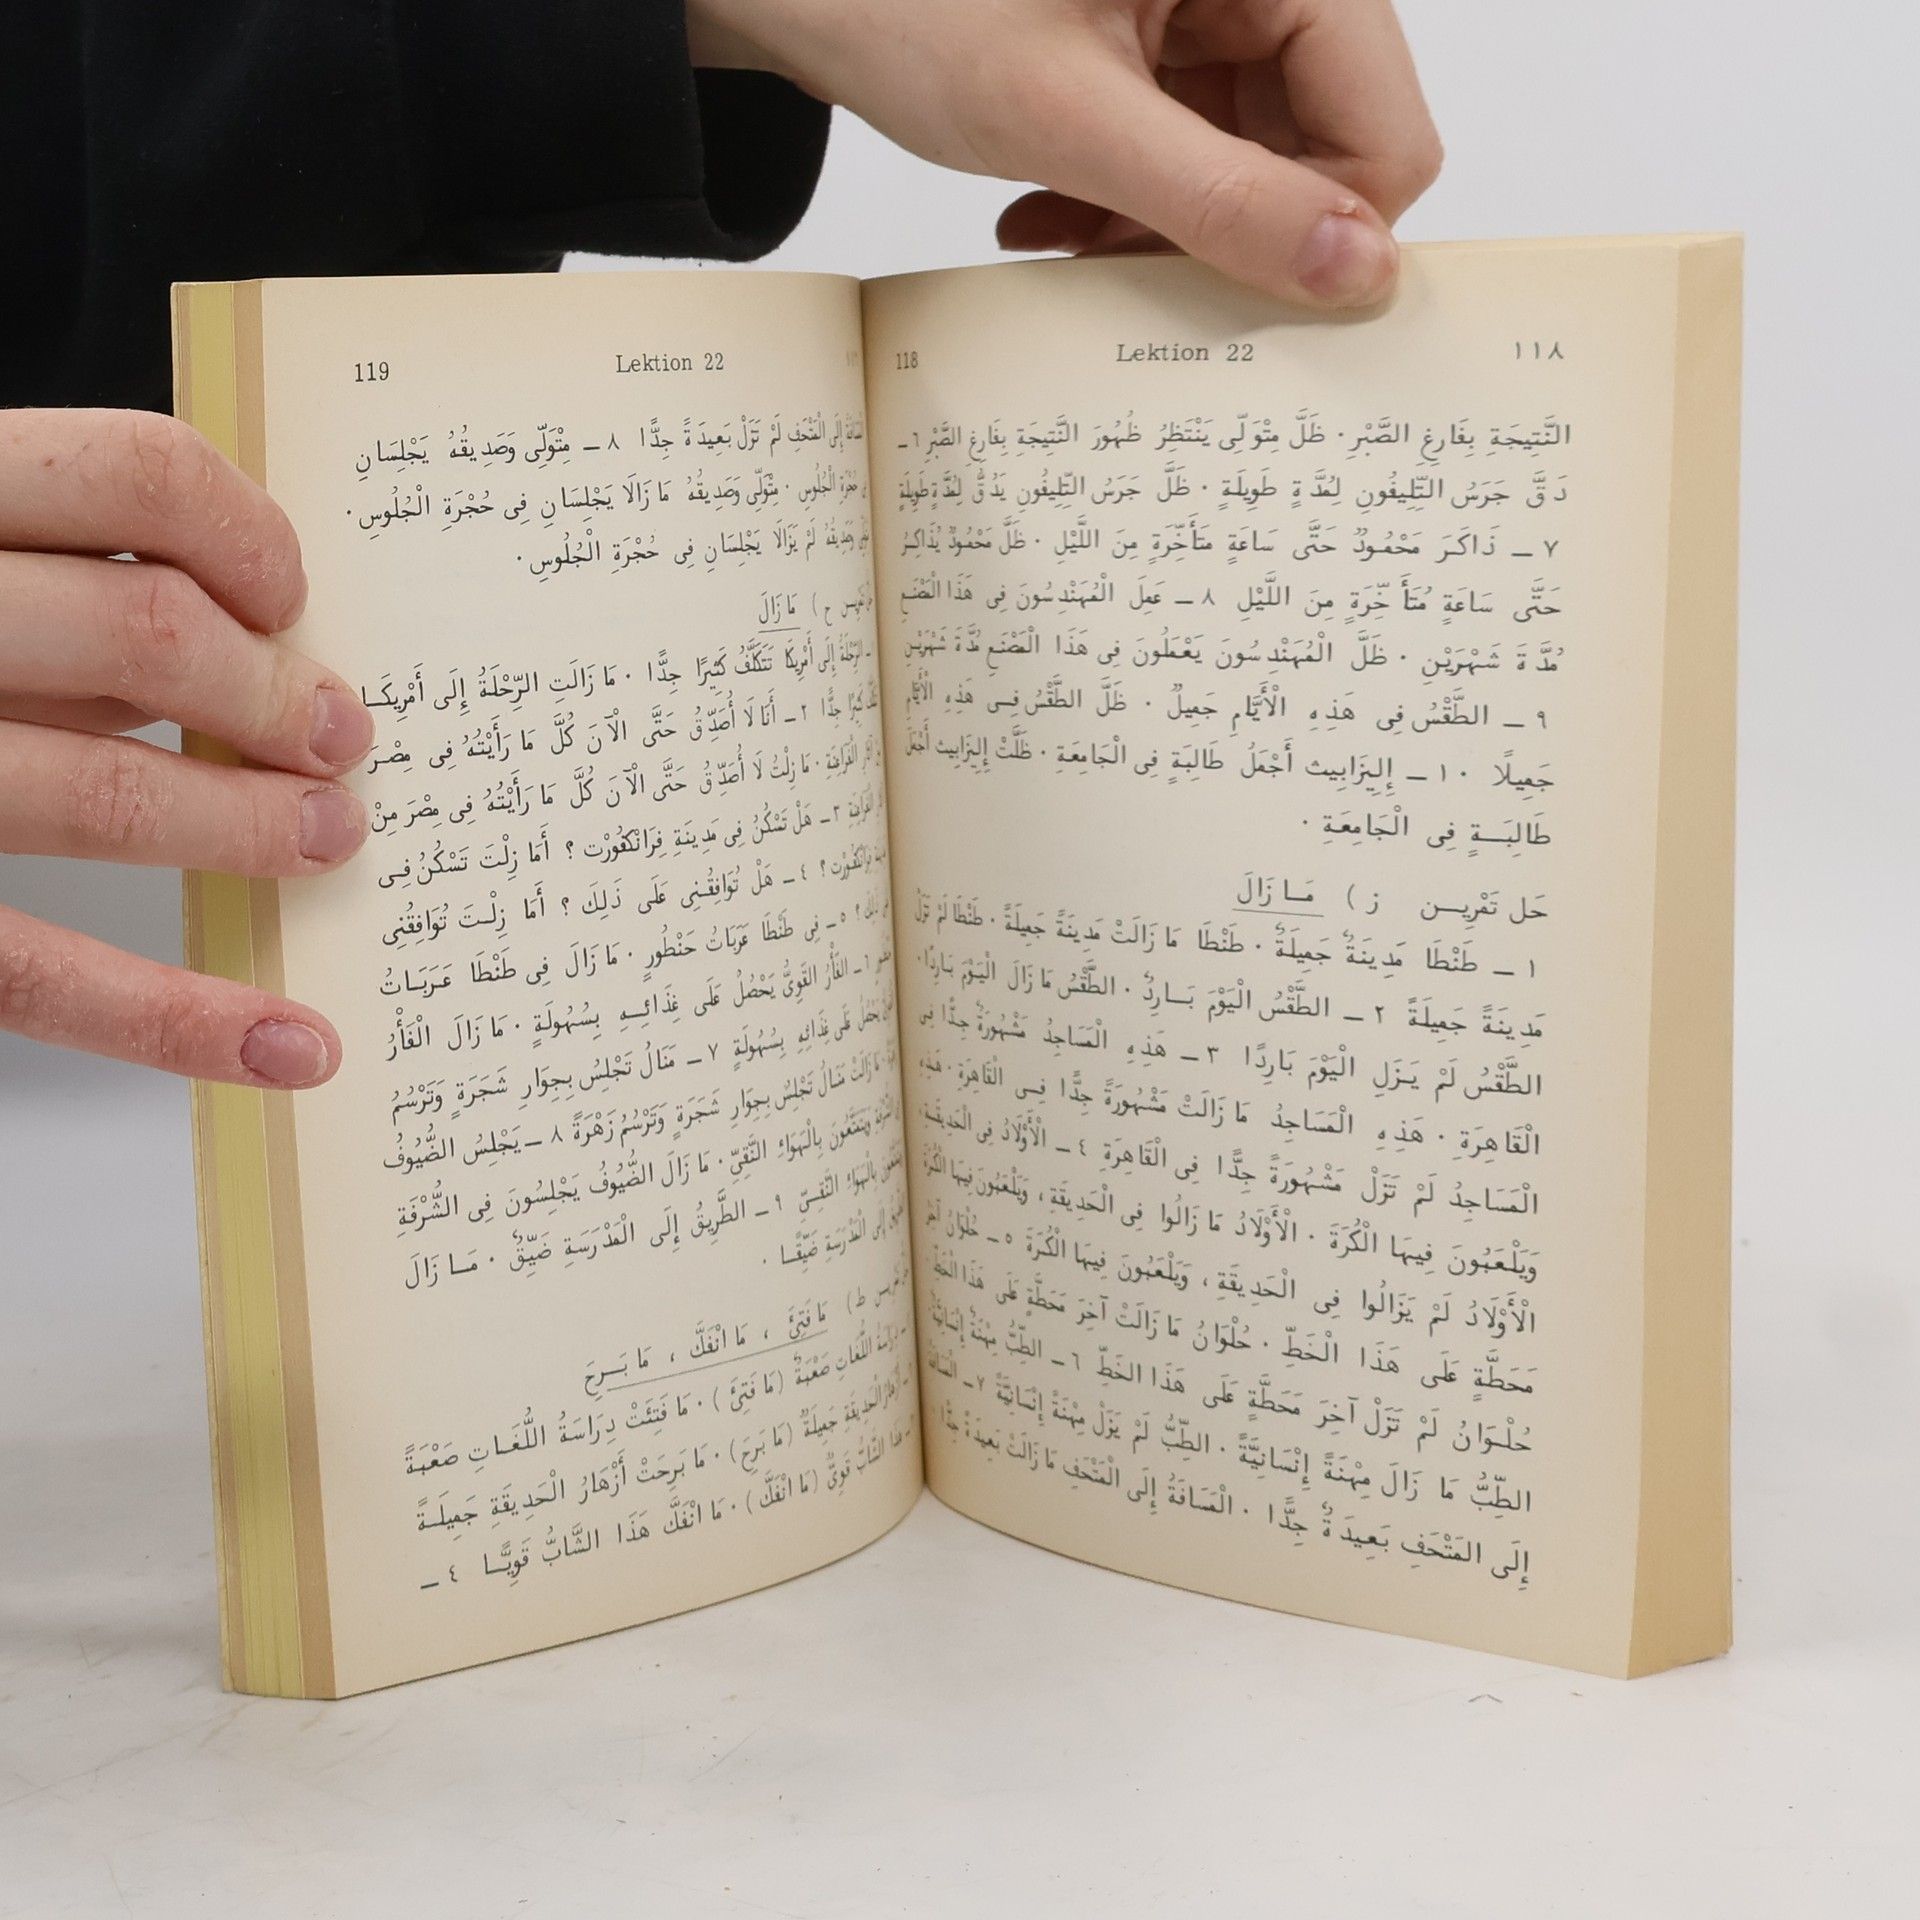 118 Lektion 22 ١١٨
النَّتِيجَةِ بِفَارِغِ الصَّبْرِ · ظَلَّ مِتْوَلِّى يَنْتَظِرُ ظُهُورَ النَّتِيجَةِ بِفَارِغِ الصَّبْرِ ٦ ــ
دَقَّ جَرَسُ التِّلِيفُونِ لِمُدَّةٍ طَوِيلَةٍ · ظَلَّ جَرَسُ التِّلِيفُونِ يَدُقُّ لِمُدَّةٍ طَوِيلَةٍ
٧ ــ ذَاكَرَ مَحْمُودٌ حَتَّى سَاعَةٍ مُتَأَخِّرَةٍ مِنَ اللَّيْلِ · ظَلَّ مَحْمُودٌ يُذَاكِرُ
حَتَّى سَاعَةٍ مُتَأَخِّرَةٍ مِنَ اللَّيْلِ ٨ ــ عَمِلَ الْمُهَنْدِسُونَ فِى هَذَا الْمَصْنَعِ
مُدَّةَ شَهْرَيْنِ · ظَلَّ الْمُهَنْدِسُونَ يَعْمَلُونَ فِى هَذَا الْمَصْنَعِ مُدَّةَ شَهْرَيْنِ
٩ ــ الطَّقْسُ فِى هَذِهِ الْأَيَّامِ جَمِيلٌ · ظَلَّ الطَّقْسُ فِى هَذِهِ الْأَيَّامِ
جَمِيلًا ١٠ ــ إِلِيزَابِيث أَجْمَلُ طَالِبَةٍ فِى الْجَامِعَةِ · ظَلَّتْ إِلِيزَابِيث أَجْمَلَ
طَالِبَةٍ فِى الْجَامِعَةِ ·
حَل تَمْرِين ز ) مَا زَالَ
١ ــ طَنْطَا مَدِينَةٌ جَمِيلَةٌ · طَنْطَا مَا زَالَتْ مَدِينَةً جَمِيلَةً · طَنْطَا لَمْ تَزَلْ
مَدِينَةً جَمِيلَةً ٢ ــ الطَّقْسُ الْيَوْمَ بَارِدٌ · الطَّقْسُ مَا زَالَ الْيَوْمَ بَارِدًا ·
الطَّقْسُ لَمْ يَزَلِ الْيَوْمَ بَارِدًا ٣ ــ هَذِهِ الْمَسَاجِدُ مَشْهُورَةٌ جِدًّا فِى
الْقَاهِرَةِ · هَذِهِ الْمَسَاجِدُ مَا زَالَتْ مَشْهُورَةً جِدًّا فِى الْقَاهِرَةِ · هَذِهِ
الْمَسَاجِدُ لَمْ تَزَلْ مَشْهُورَةً جِدًّا فِى الْقَاهِرَةِ ٤ ــ الْأَوْلَادُ فِى الْحَدِيقَةِ
وَيَلْعَبُونَ فِيهَا الْكُرَةَ · الْأَوْلَادُ مَا زَالُوا فِى الْحَدِيقَةِ ، وَيَلْعَبُونَ فِيهَا الْكُرَةَ
الْأَوْلَادُ لَمْ يَزَالُوا فِى الْحَدِيقَةِ ، وَيَلْعَبُونَ فِيهَا الْكُرَةَ ٥ ــ حُلْوَانُ آخِرُ
مَحَطَّةٍ عَلَى هَذَا الْخَطِّ · حُلْوَانُ مَا زَالَتْ آخِرَ مَحَطَّةٍ عَلَى هَذَا الْخَطِّ ·
حُلْوَانُ لَمْ تَزَلْ آخِرَ مَحَطَّةٍ عَلَى هَذَا الْخَطِّ ٦ ــ الطِّبُّ مِهْنَةٌ إِنْسَانِيَّةٌ
الطِّبُّ مَا زَالَ مِهْنَةً إِنْسَانِيَّةً · الطِّبُّ لَمْ يَزَلْ مِهْنَةً إِنْسَانِيَّةً ٧ ــ الْمَسَافَةُ
إِلَى الْمَتْحَفِ بَعِيدَةٌ جِدًّا · الْمَسَافَةُ إِلَى الْمَتْحَفِ مَا زَالَتْ بَعِيدَةً جِدًّا ·
119 Lektion 22
إِلَى الْمَتْحَفِ لَمْ تَزَلْ بَعِيدَةً جِدًّا ٨ ــ مِتْوَلِّى وَصَدِيقُهُ يَجْلِسَانِ
حُجْرَةِ الْجُلُوسِ · مِتْوَلِّى وَصَدِيقُهُ مَا زَالَا يَجْلِسَانِ فِى حُجْرَةِ الْجُلُوسِ ·
وَصَدِيقُهُ لَمْ يَزَالَا يَجْلِسَانِ فِى حُجْرَةِ الْجُلُوسِ ·
ح ) مَا زَالَ
الرِّحْلَةُ إِلَى أَمْرِيكَا تَتَكَلَّفُ كَثِيرًا جِدًّا · مَا زَالَتِ الرِّحْلَةُ إِلَى أَمْرِيكَا
كَثِيرًا جِدًّا ٢ ــ أَنَا لَا أُصَدِّقُ حَتَّى الْآنَ كُلَّ مَا رَأَيْتُهُ فِى مِصْرَ
الْفَرَاعِنَةِ · مَا زِلْتُ لَا أُصَدِّقُ حَتَّى الْآنَ كُلَّ مَا رَأَيْتُهُ فِى مِصْرَ مِنْ
٣ ــ هَلْ تَسْكُنُ فِى مَدِينَةِ فِرَانْكفُورْت ؟ أَمَا زِلْتَ تَسْكُنُ فِى
؟ ٤ ــ هَلْ تُوَافِقُنِى عَلَى ذَلِكَ ؟ أَمَا زِلْتَ تُوَافِقُنِى
؟ ٥ ــ فِى طَنْطَا عَرَبَاتُ حَنْطُورٍ · مَا زَالَ فِى طَنْطَا عَرَبَاتُ
٦ ــ الْفَأْرُ الْقَوِىُّ يَحْصُلُ عَلَى غِذَائِهِ بِسُهُولَةٍ · مَا زَالَ الْفَأْرُ
يَحْصُلُ عَلَى غِذَائِهِ بِسُهُولَةٍ ٧ ــ مَنَالُ تَجْلِسُ بِجِوَارِ شَجَرَةٍ وَتَرْسُمُ
مَا زَالَتْ مَنَالُ تَجْلِسُ بِجِوَارِ شَجَرَةٍ وَتَرْسُمُ زَهْرَةً ٨ ــ يَجْلِسُ الضُّيُوفُ
بِالْهَوَاءِ النَّقِىِّ · مَا زَالَ الضُّيُوفُ يَجْلِسُونَ فِى الشُّرْفَةِ
بِالْهَوَاءِ النَّقِىِّ ٩ ــ الطَّرِيقُ إِلَى الْمَدْرَسَةِ ضَيِّقٌ · مَا زَالَ
إِلَى الْمَدْرَسَةِ ضَيِّقًا ·
ط ) مَا فَتِئَ ، مَا انْفَكَّ ، مَا بَرِحَ
دِرَاسَةُ اللُّغَاتِ صَعْبَةٌ (مَا فَتِئَ) · مَا فَتِئَتْ دِرَاسَةُ اللُّغَاتِ صَعْبَةً
الْحَدِيقَةِ جَمِيلَةٌ (مَا بَرِحَ) · مَا بَرِحَتْ أَزْهَارُ الْحَدِيقَةِ جَمِيلَةً
الشَّابُّ قَوِىٌّ (مَا انْفَكَّ) · مَا انْفَكَّ هَذَا الشَّابُّ قَوِيًّا ٤ ــ